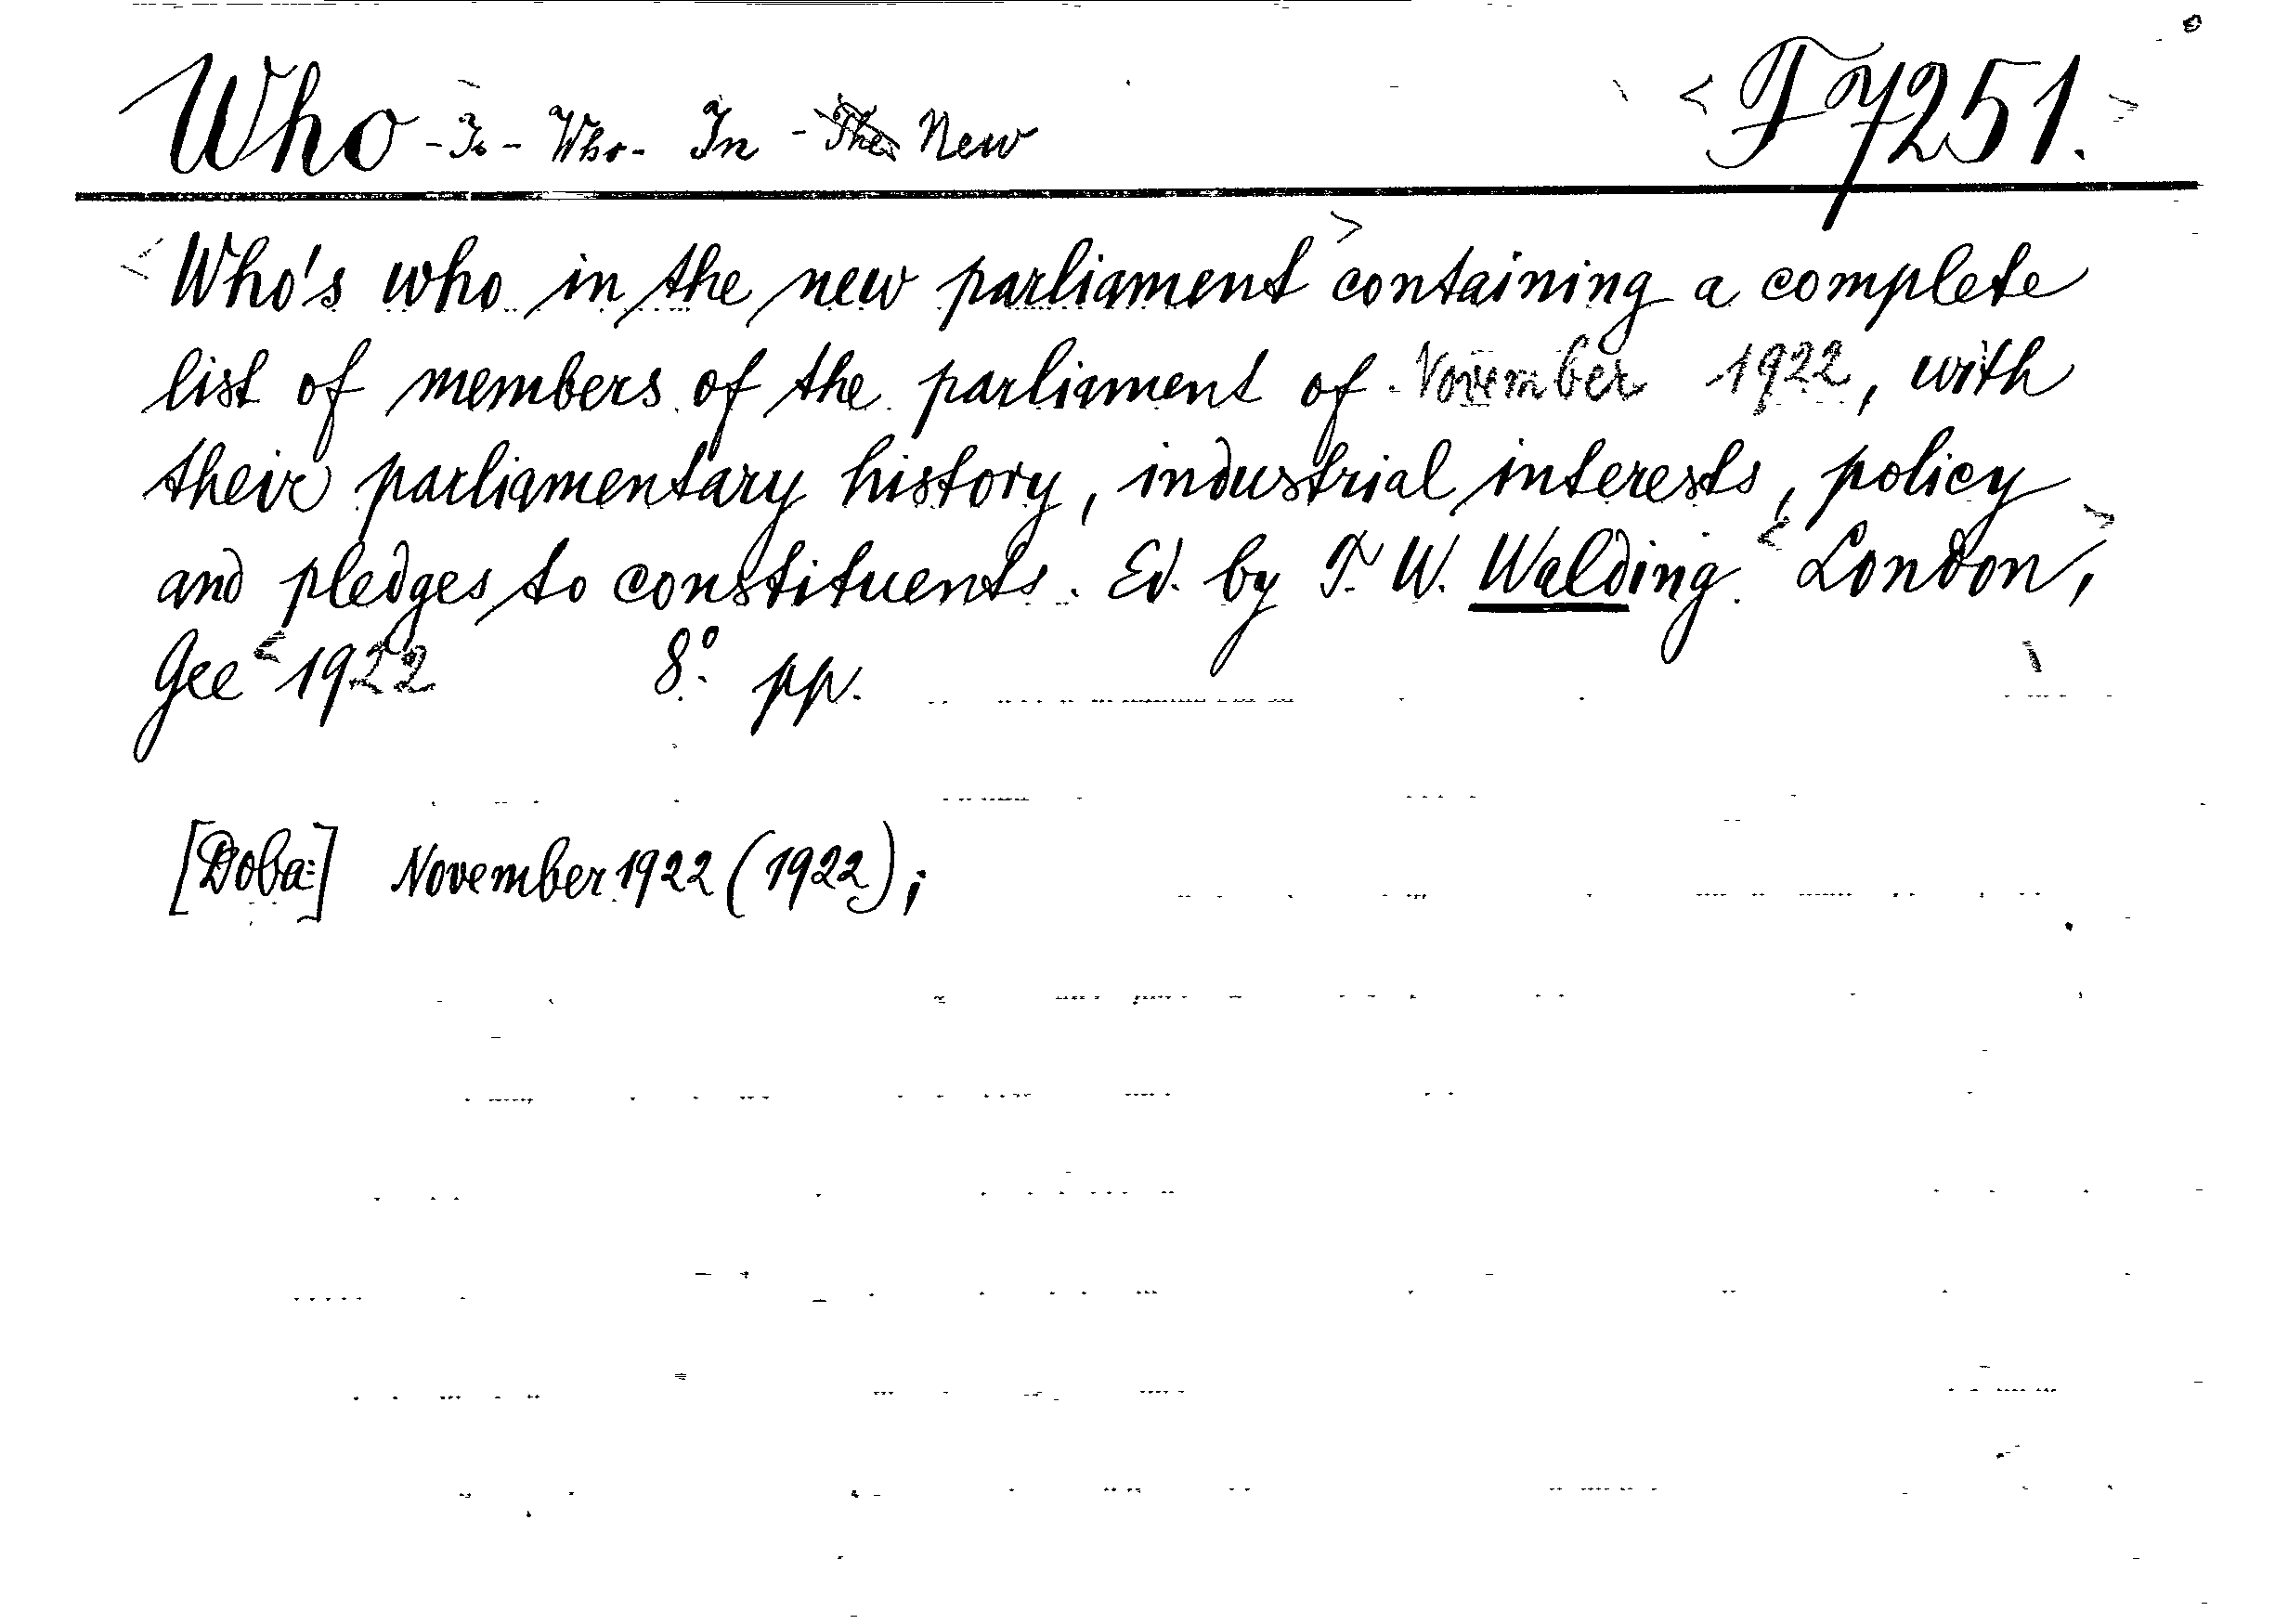 Who - Is - Who - In - The New <F 7251.>
<Who's who in the new parliament> containing a complete
list of members of the parliament of November 1922, with
their parliamentary history, industrial interests, policy
and pledges to constituents. Ed. by T. W. Walding. <London,>
Gee <1922 8°. pp.
[Doba:] November 1922 (1922);